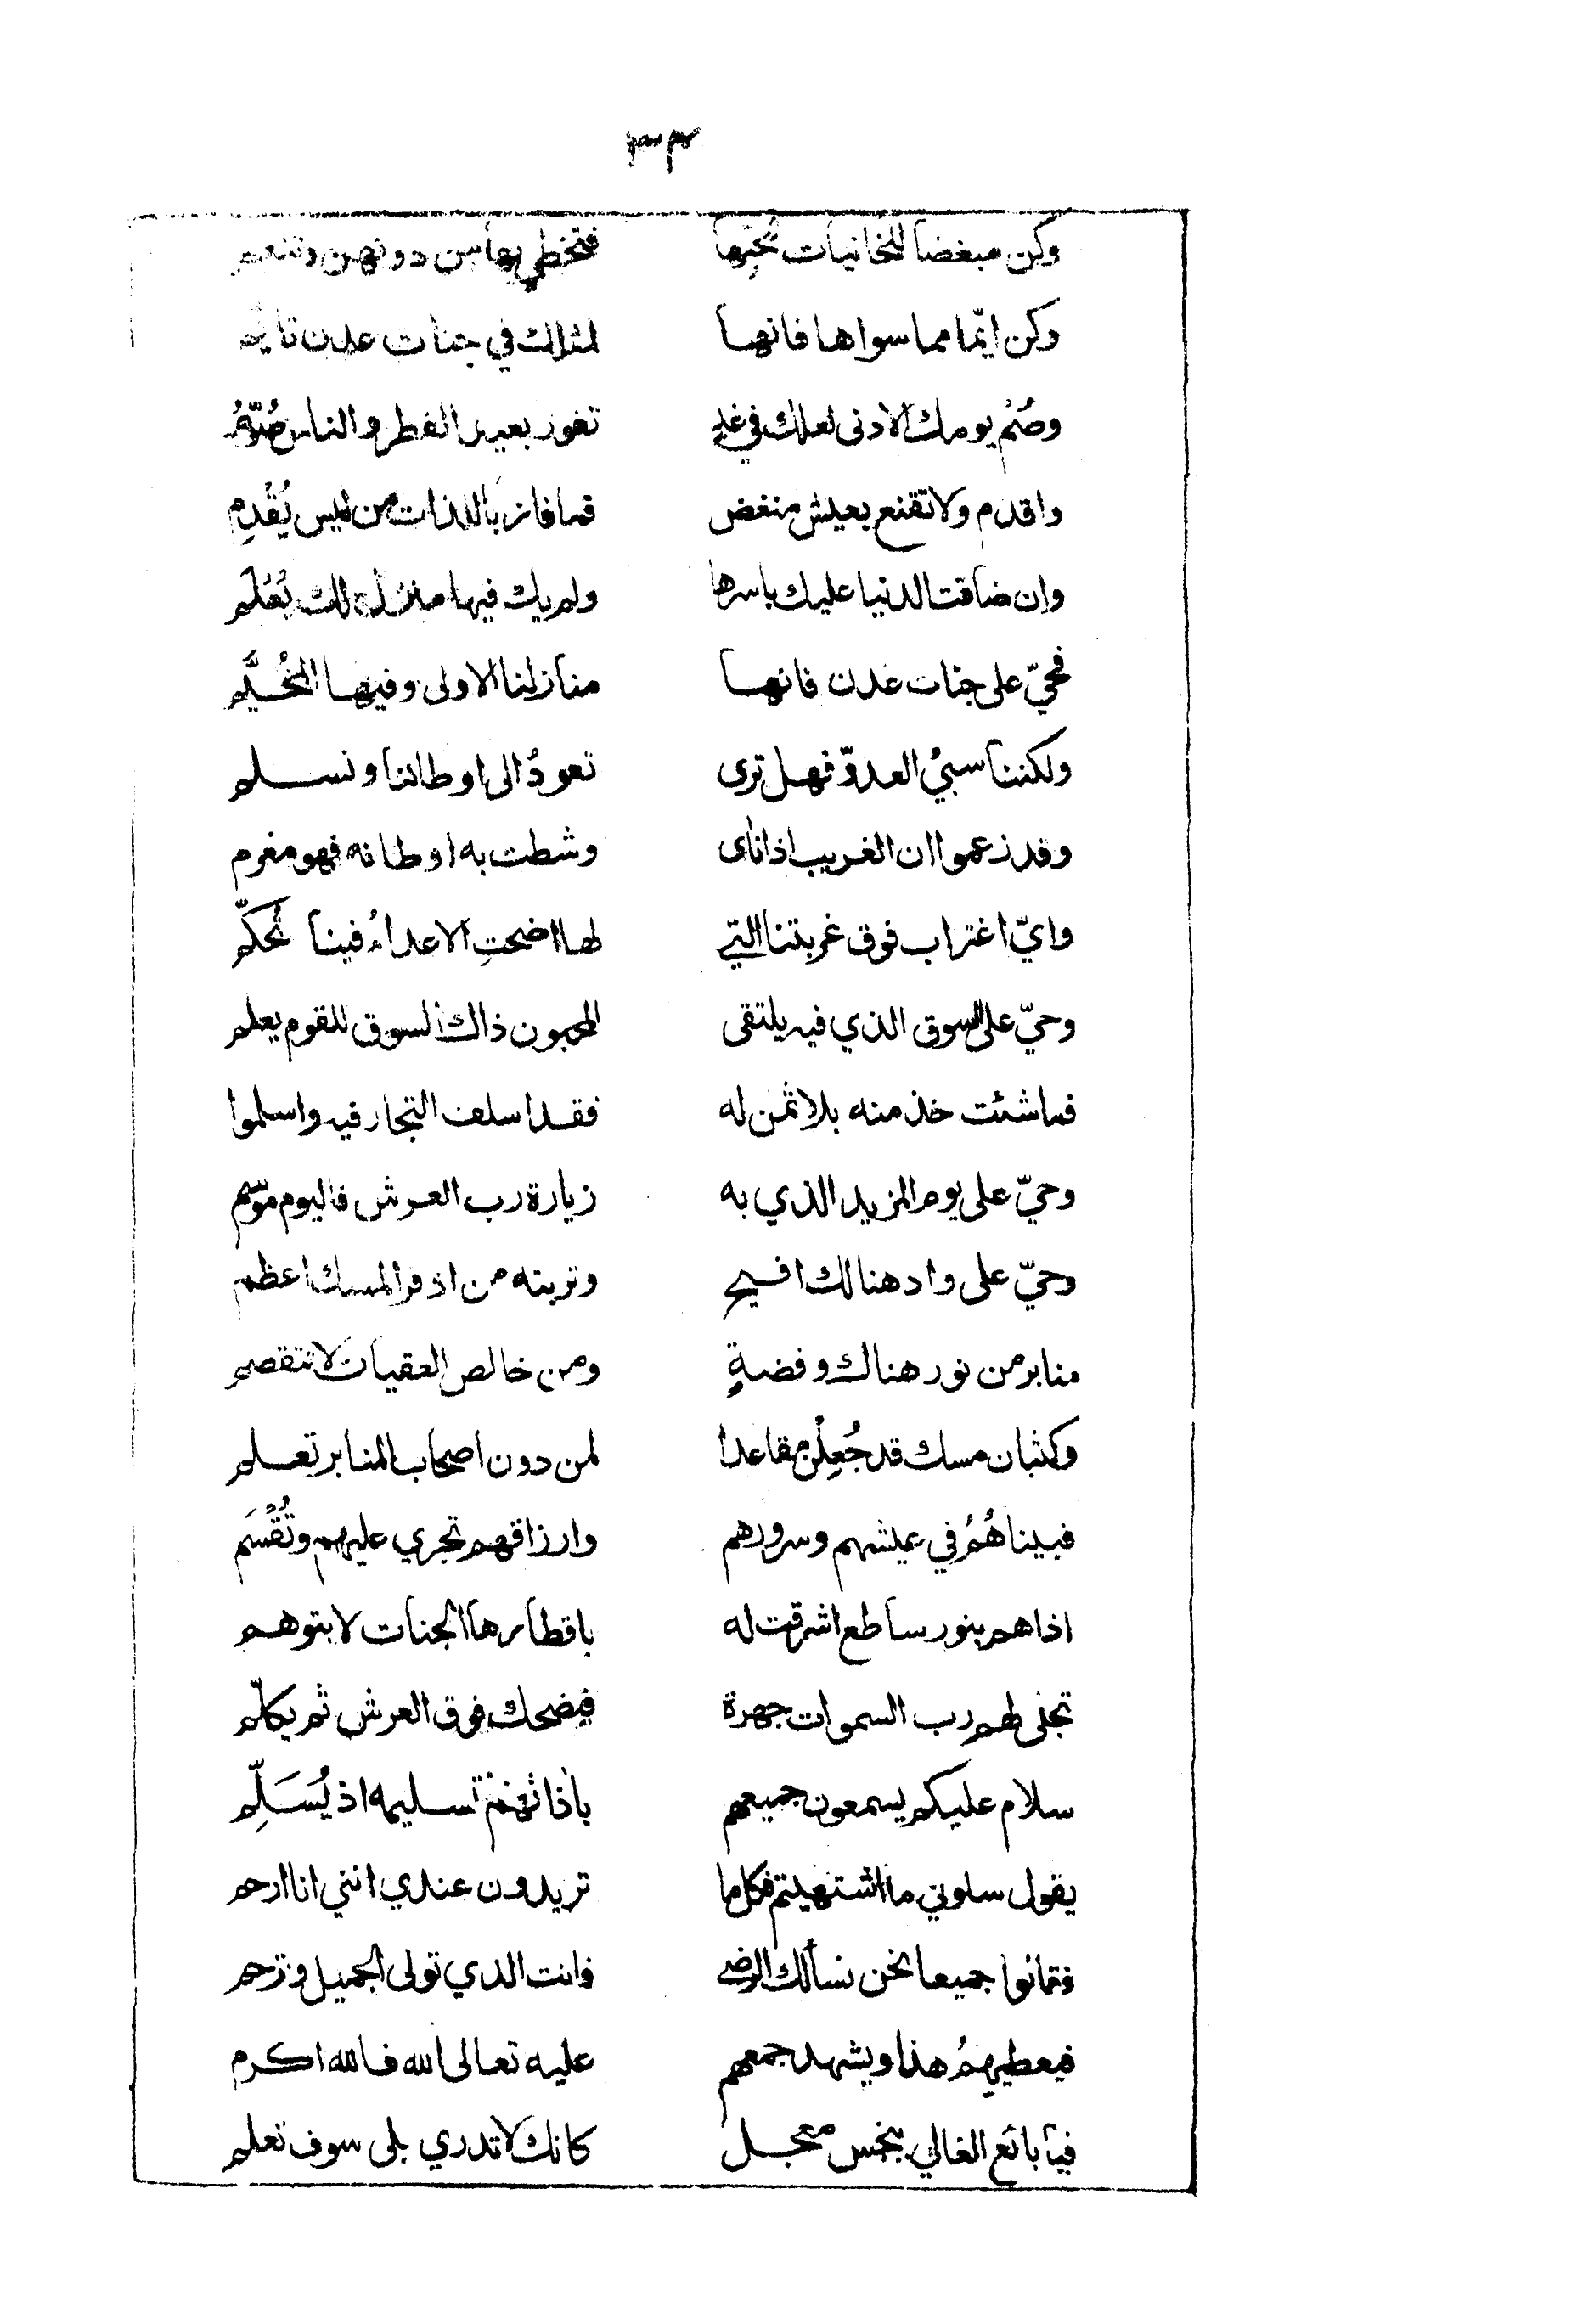 ٣٣
وكن مبغضا للخانيات لحبها فتخطى بها من دونهن وتنعم
وكن ايّما مما سواها فانها لمثلك في جنات عدن تأيم
وصُمْ يومك الادنى لعلك في غدٍ تفوز بعيد الفطر والناس صُوَّمُ
واقدم ولا تقنع بعيش منغض فما فاز باللذات من ليس يُقْدِم
وان ضاقت الدنيا عليك باسرها ولم يك فيها منزل لك يُعْلَم
فحيّ على جنات عدن فانها منازلنا الاولى وفيها المُخَيَّم
ولكننا سبيُ العدوّ فهل ترى نعودُ الى اوطاننا ونسلم
وقد زعموا ان الغريب اذا نأى وشطت به اوطانه فهو مغرم
وايّ اغتراب فوق غربتنا التي لها اضحتِ الاعداءُ فينا تُحكّم
وحيّ على السوق الذي فيه يلتقى المحبون ذاك السوق للقوم يعلم
فما شئت خذ منه بلا ثمن له فقد اسلف التجار فيه واسلموا
وحيّ على يوم المزيد الذي به زيارة رب العرش فاليوم موسم
وحيّ على واد هنالك افيح وتربته من اذفر المسك اعظم
منابر من نور هناك وفضةٍ ومن خالص العقيان لا تتقصم
وكثبان مسك قد جُعِلْن مقاعدا لمن دون اصحاب المنابر تعلم
فبينا هُمُ في عيشهم وسرورهم وارزاقهم تجري عليهم وتُقْسَم
اذا هم بنور ساطع اشرقت له باقطارها الجنات لا يتوهم
تجلى لهم رب السموات جهرة فيضحك فوق العرش ثم يكلّم
سلام عليكم يسمعون جميعهم باذانهم تسليمه اذ يُسَلِّم
يقول سلوني ما اشتهيتم فكل ما تريدون عندي انني انا ارحم
فقالوا جميعا نحن نسألك الرضى فانت الذي تولى الجميل وترحم
فيعطيهمُ هذا ويشهد جمعهم عليه تعالى الله فالله اكرم
فيا بائع الغالي ببخس معجل كانك لا تدري بلى سوف تعلم